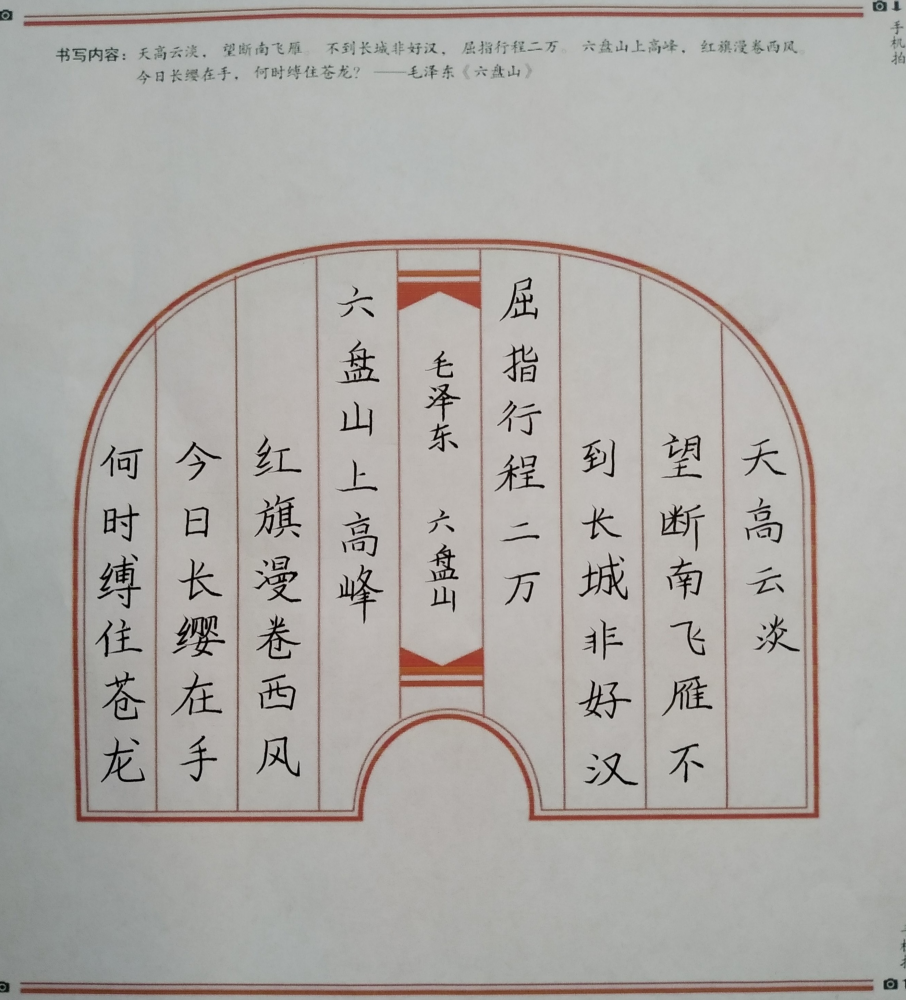 书写内容：天高云淡，望断南飞雁。不到长城非好汉，屈指行程二万。六盘山上高峰，红旗漫卷西风。
今日长缨在手，何时缚住苍龙？——毛泽东《六盘山》
手机拍
天高云淡
望断南飞雁不
到长城非好汉
屈指行程二万
毛泽东 六盘山
六盘山上高峰
红旗漫卷西风
今日长缨在手
何时缚住苍龙